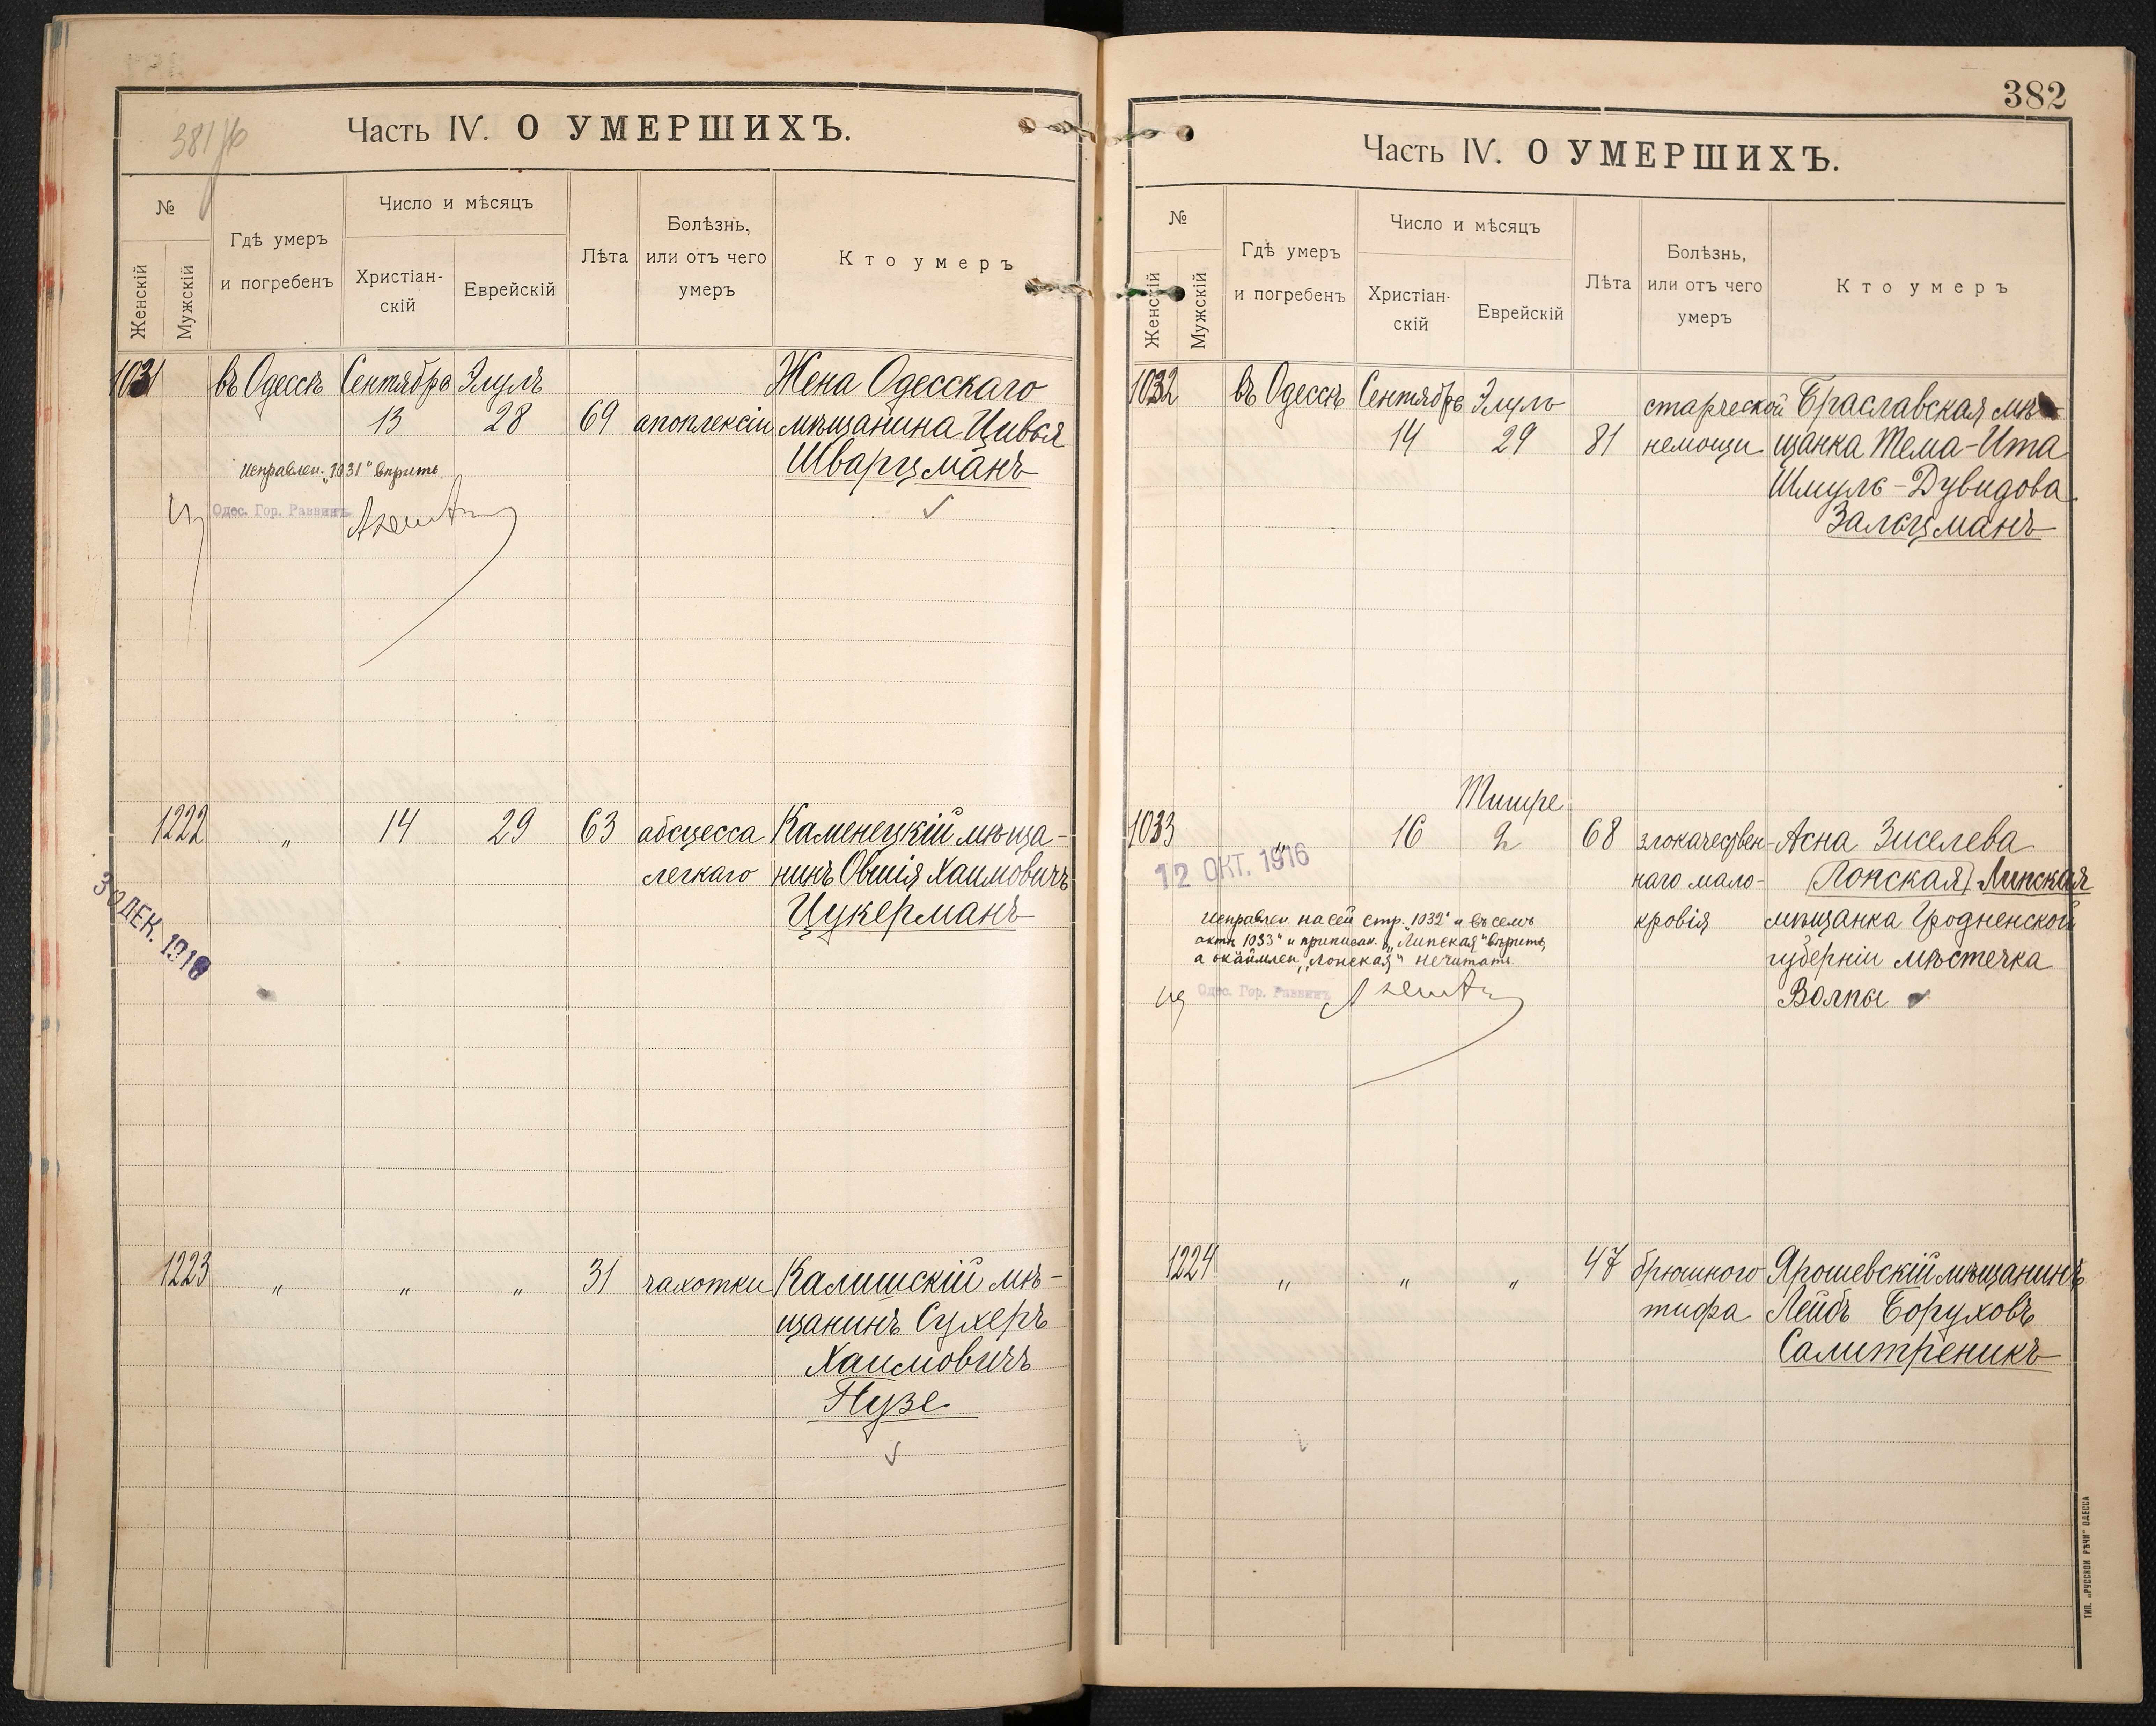 381 об
Часть IV. О УМЕРШИХЪ.
№
Женскій
Мужскій
Гдѣ умеръ
и погребенъ
Число и мѣсяцъ
Христіан-
скій
Еврейскій
Лѣта
Болѣзнь,
или отъ чего
умеръ
Кто умеръ
1031 въ Одессѣ Сентября Элулъ Жена Одесскаго
13 28 69 апоплексіи мѣщанина Цивья
Шварцманъ
Исправлен. "1031" вѣрить
Одес. Гор. Раввинъ
1222 " 14 29 63 абсцесса Каменецкій мѣща-
легкаго нинъ Овшія Хаимовичъ
Цукерманъ
30 ДЕК. 1916
1223 " " " 31 чахотки Калишскій мѣ-
щанинъ Сухеръ
Хаимовичъ
Пузе
382
Часть IV. О УМЕРШИХЪ.
№
Женскій
Мужскій
Гдѣ умеръ
и погребенъ
Число и мѣсяцъ
Христіан-
скій
Еврейскій
Лѣта
Болѣзнь,
или отъ чего
умеръ
Кто умеръ
1032 въ Одессѣ Сентября Элулъ старческой Браславская мѣ-
14 29 81 немощи щанка Тема-Ита
Шмуль-Дувидова
Зальцманъ
Тишре
1033 " 16 2 68 злокачествен- Асна Зиселева
12 ОКТ. 1916
наго мало- (Лопская) Липская
кровія мѣщанка Гродненской
губерніи мѣстечка
Волпы
Исправлен. на сей стр. "1032" и въ семъ
актѣ "1033" и приписан. "Липская" вѣрить,
а окаймлен. "Лопская" не читать.
Одес. Гор. Раввинъ
1224 " " " 47 брюшного Ярошевскій мѣщанинъ
тифа Лейбъ Боруховъ
Салитреникъ
ТИП. „РУССКОЙ РѢЧИ" ОДЕССА